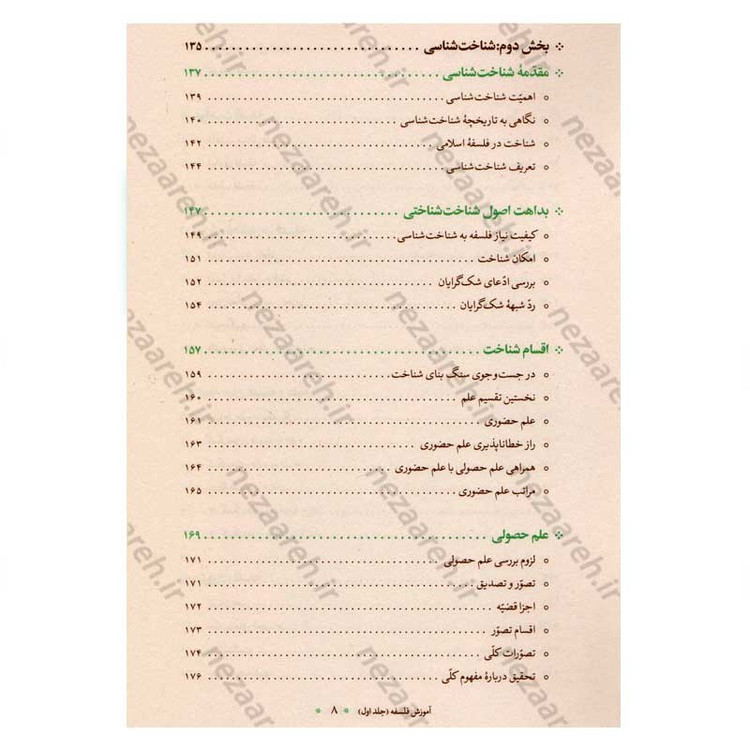 ❖ بخش دوم: شناخت‌شناسی ........ ۱۳۵
❖ مقدّمهٔ شناخت‌شناسی ........ ۱۳۷
○ اهمیّت شناخت‌شناسی ........ ۱۳۹
○ نگاهی به تاریخچهٔ شناخت‌شناسی ........ ۱۴۰
○ شناخت در فلسفهٔ اسلامی ........ ۱۴۲
○ تعریف شناخت‌شناسی ........ ۱۴۴
❖ بداهت اصول شناخت‌شناختی ........ ۱۴۷
○ کیفیت نیاز فلسفه به شناخت‌شناسی ........ ۱۴۹
○ امکان شناخت ........ ۱۵۱
○ بررسی ادّعای شک‌گرایان ........ ۱۵۲
○ ردّ شبههٔ شک‌گرایان ........ ۱۵۴
❖ اقسام شناخت ........ ۱۵۷
○ در جست‌وجوی سنگ بنای شناخت ........ ۱۵۹
○ نخستین تقسیم علم ........ ۱۶۰
○ علم حضوری ........ ۱۶۱
○ راز خطاناپذیری علم حضوری ........ ۱۶۳
○ همراهی علم حصولی با علم حضوری ........ ۱۶۴
○ مراتب علم حضوری ........ ۱۶۵
❖ علم حصولی ........ ۱۶۹
○ لزوم بررسی علم حصولی ........ ۱۷۱
○ تصوّر و تصدیق ........ ۱۷۱
○ اجزا قضیّه ........ ۱۷۲
○ اقسام تصوّر ........ ۱۷۳
○ تصوّرات کلّی ........ ۱۷۴
○ تحقیق دربارهٔ مفهوم کلّی ........ ۱۷۶
آموزش فلسفه (جلد اول) * ۸ *
nezaareh.ir